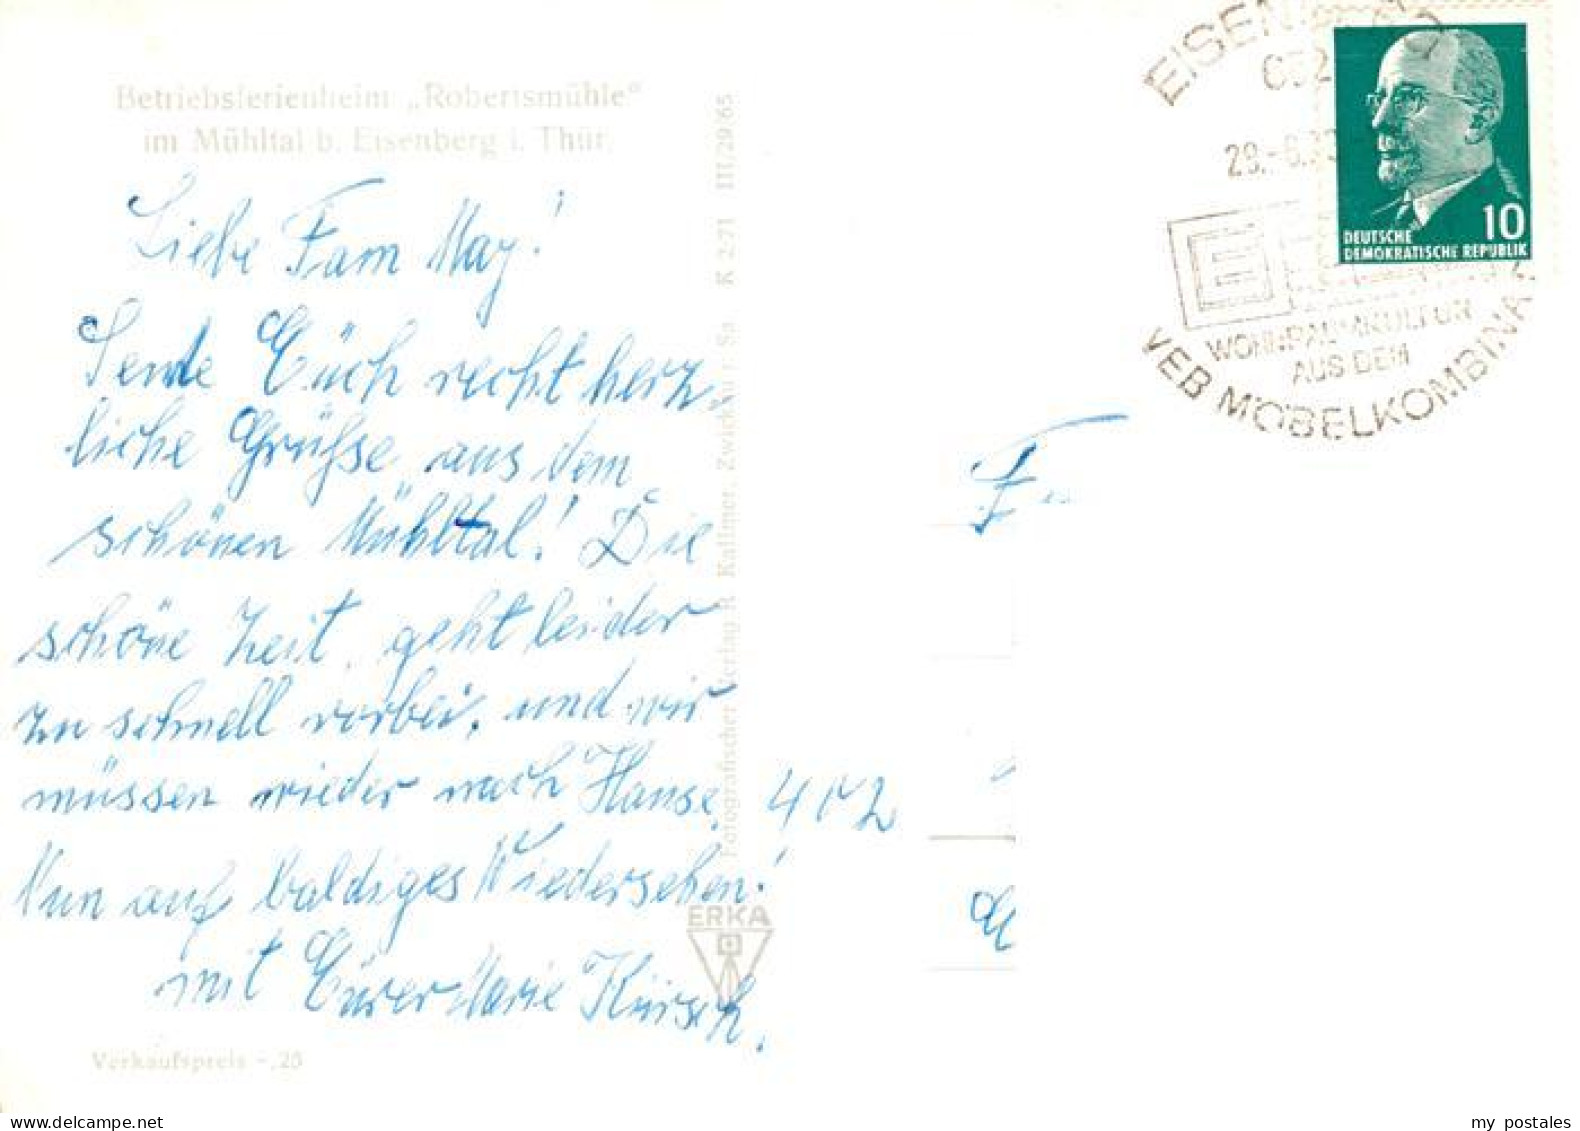 Betriebsferienheim „Robertsmühle“
im Mühltal b. Eisenberg i. Thür.
Liebe Fam May!
Sende Euch recht herz-
liche Grüße aus dem
schönen Mühltal! Die
schöne Zeit, geht leider
zu schnell vorbei, und wir
müssen wieder nach Hause.
Nun auf baldiges Wiedersehen!
mit Eurer Marie Kürsch.
Verkaufspreis -,25
Fotografischer Verlag R. Kallmer, Zwickau i. Sa. K 2/71 III/29/65
ERKA
402
EISENBERG
652
29.-6.
E
WOHNRAUMKULTUR
AUS DEM
VEB MÖBELKOMBINAT
10
DEUTSCHE
DEMOKRATISCHE REPUBLIK
my postales